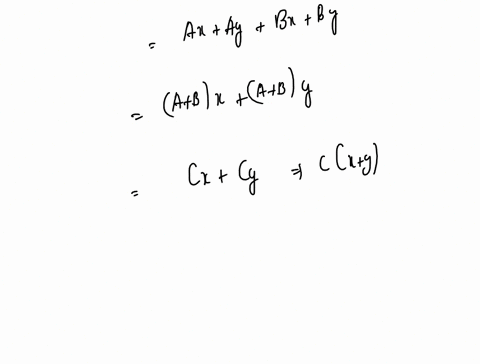 = Ax + Ay + Bx + By
= (A+B)x + (A+B)y
= Cx + Cy ⇒ C(x+y)